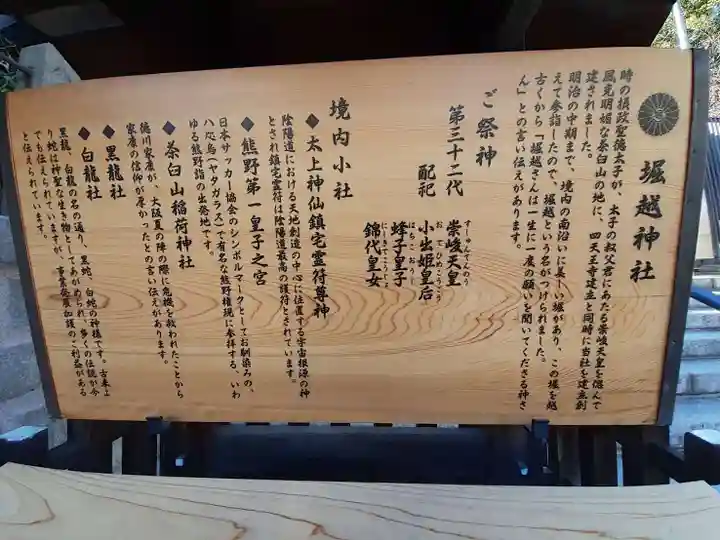 堀越神社
時の摂政聖徳太子が、太子の叔父君にあたる崇峻天皇を偲んで
風光明媚な茶臼山の地に、四天王寺建立と同時に当社を建立創
建されました。
明治の中期まで、境内の南沿いに美しい堀があり、この堀を越
えて参詣したので、堀越という名がつけられました。
古くから「堀越さんは一生に一度の願いを聞いてくださる神さ
ん」との言い伝えがあります。
ご祭神
第三十二代 崇峻天皇 すしゅんてんのう
配祀 小出姫皇后 おてひめこうごう
蜂子皇子 はちこおうじ
錦代皇女 にしきてこうじょ
境内小社
◆太上神仙鎮宅霊符尊神
陰陽道における天地創造の中心に位置する宇宙根源の神
とされ鎮宅霊符は陰陽道最高の護符とされています。
◆熊野第一皇子之宮
日本サッカー協会のシンボルマークとしてお馴染みの、
八咫烏(ヤタガラス)で有名な熊野権現に参拝する、いわ
ゆる熊野詣の出発地です。
◆茶臼山稲荷神社
徳川家康が、大阪夏の陣の際に危機を救われたことから
家康の信仰が厚かったとの言い伝えがあります。
◆黒龍社
◆白龍社
黒龍、白龍の名の通り、黒蛇、白蛇の神様です。古来よ
り蛇は神聖な生き物としてあがめられ、多くの伝説が今
でも伝えられていますが、事業発展加護のご利益がある
と伝えられています。